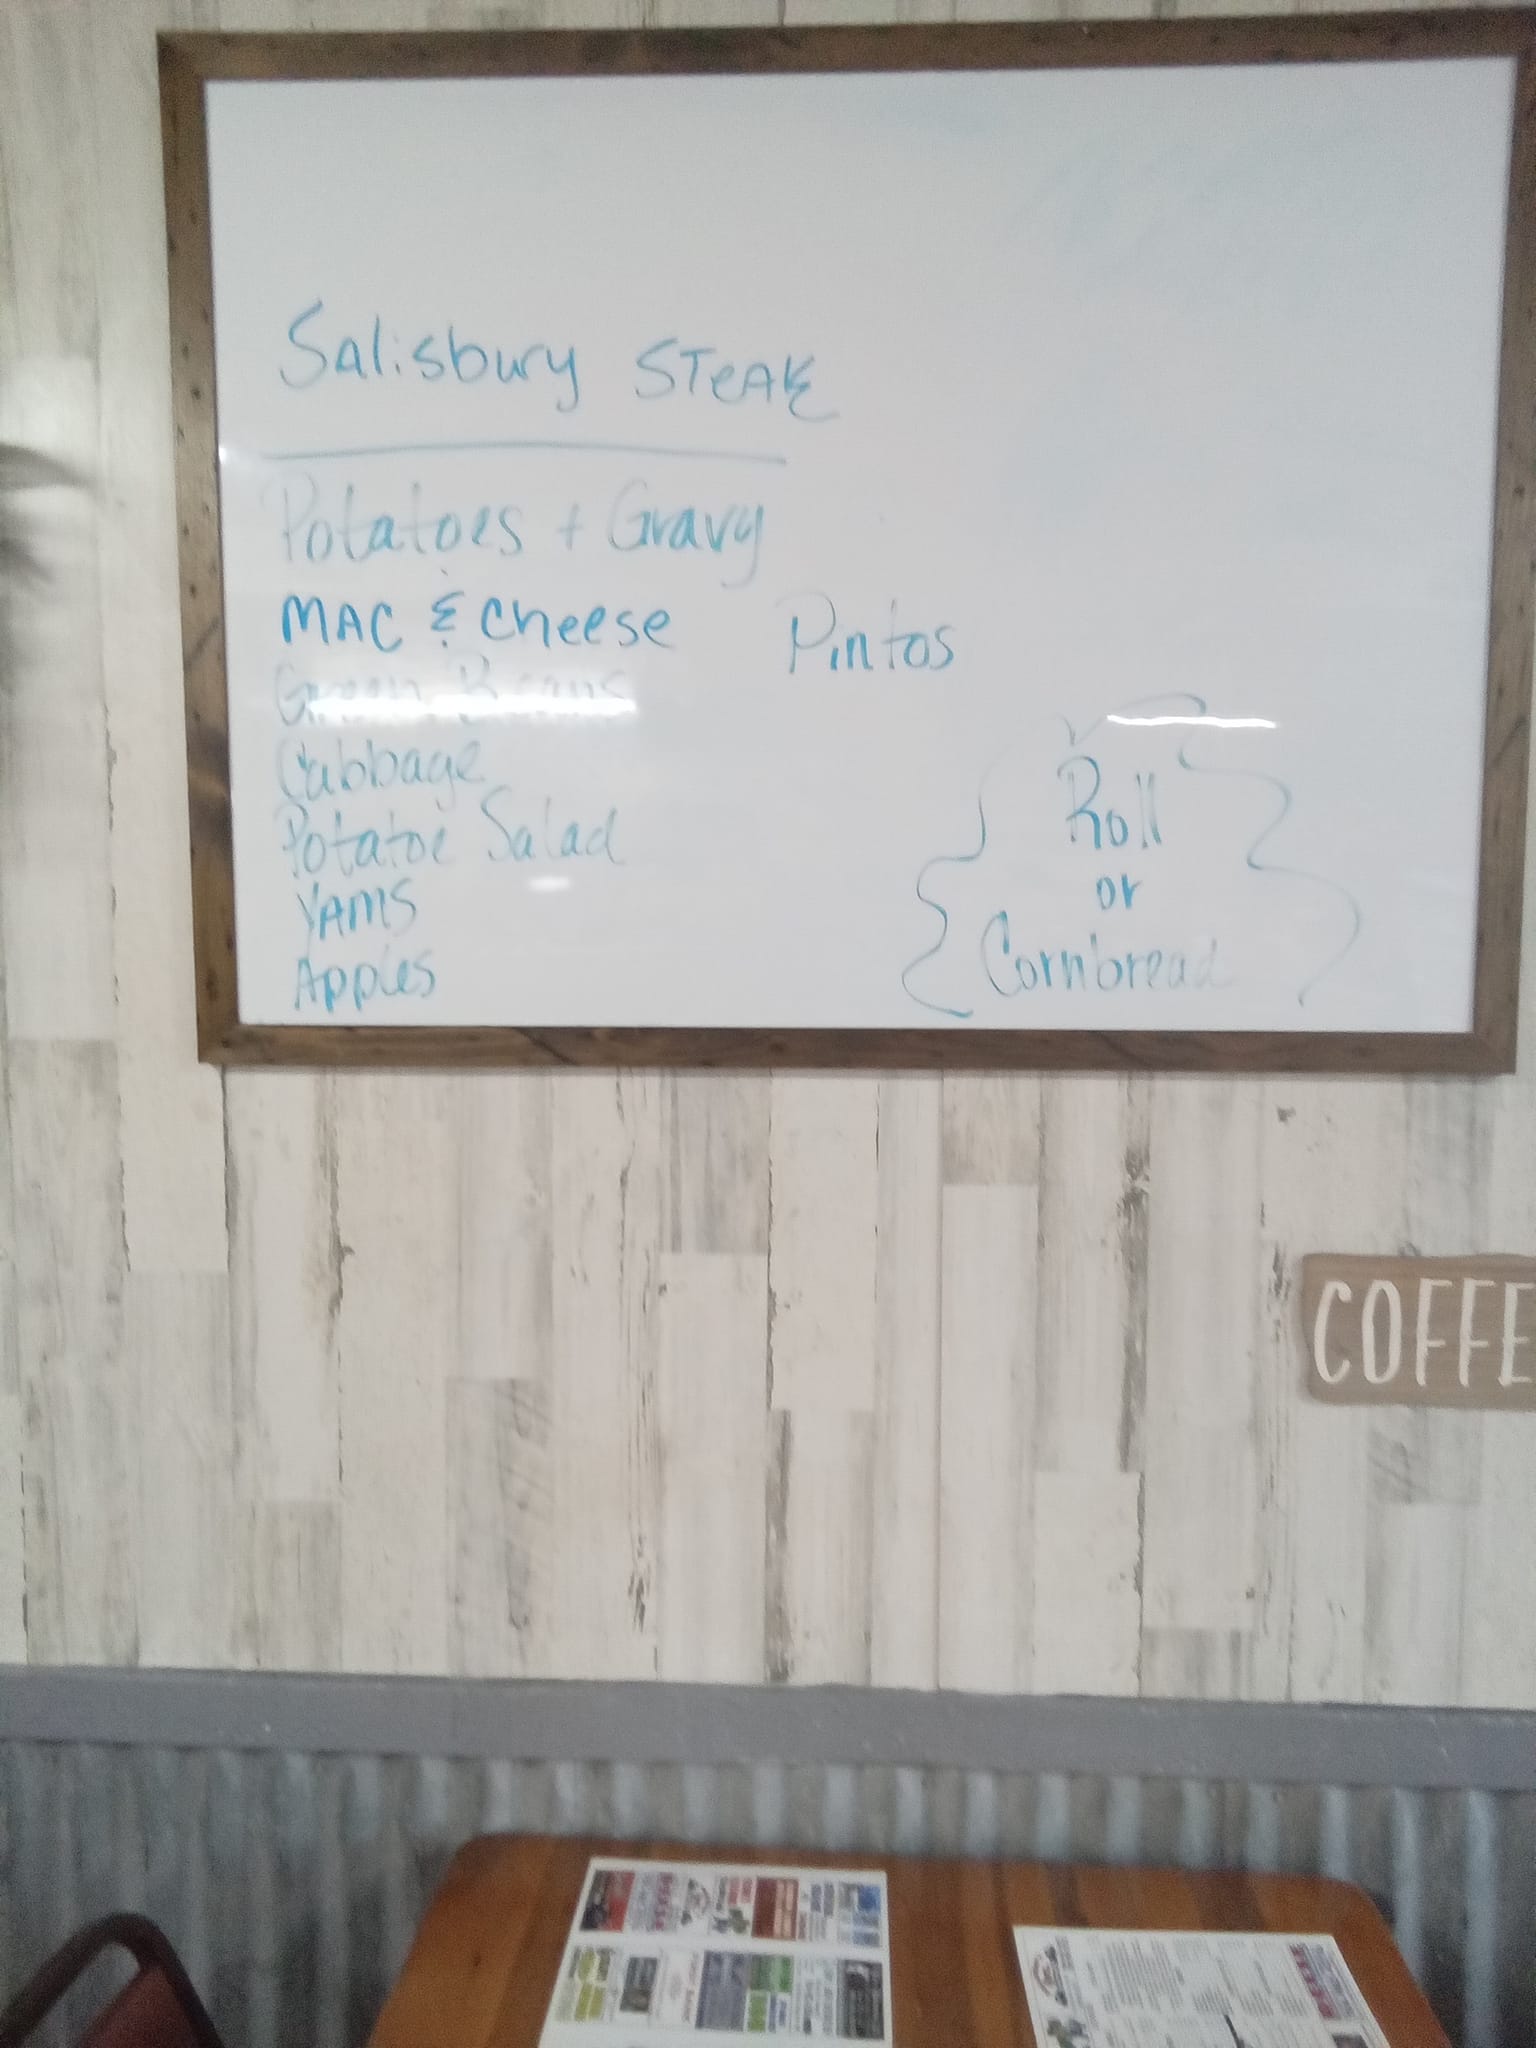 Salisbury STEAK
Potatoes + Gravy
MAC & Cheese
Pintos
Green Beans
Cabbage
Potatoe Salad
YAMS
Apples
Roll
or
Cornbread
COFFE